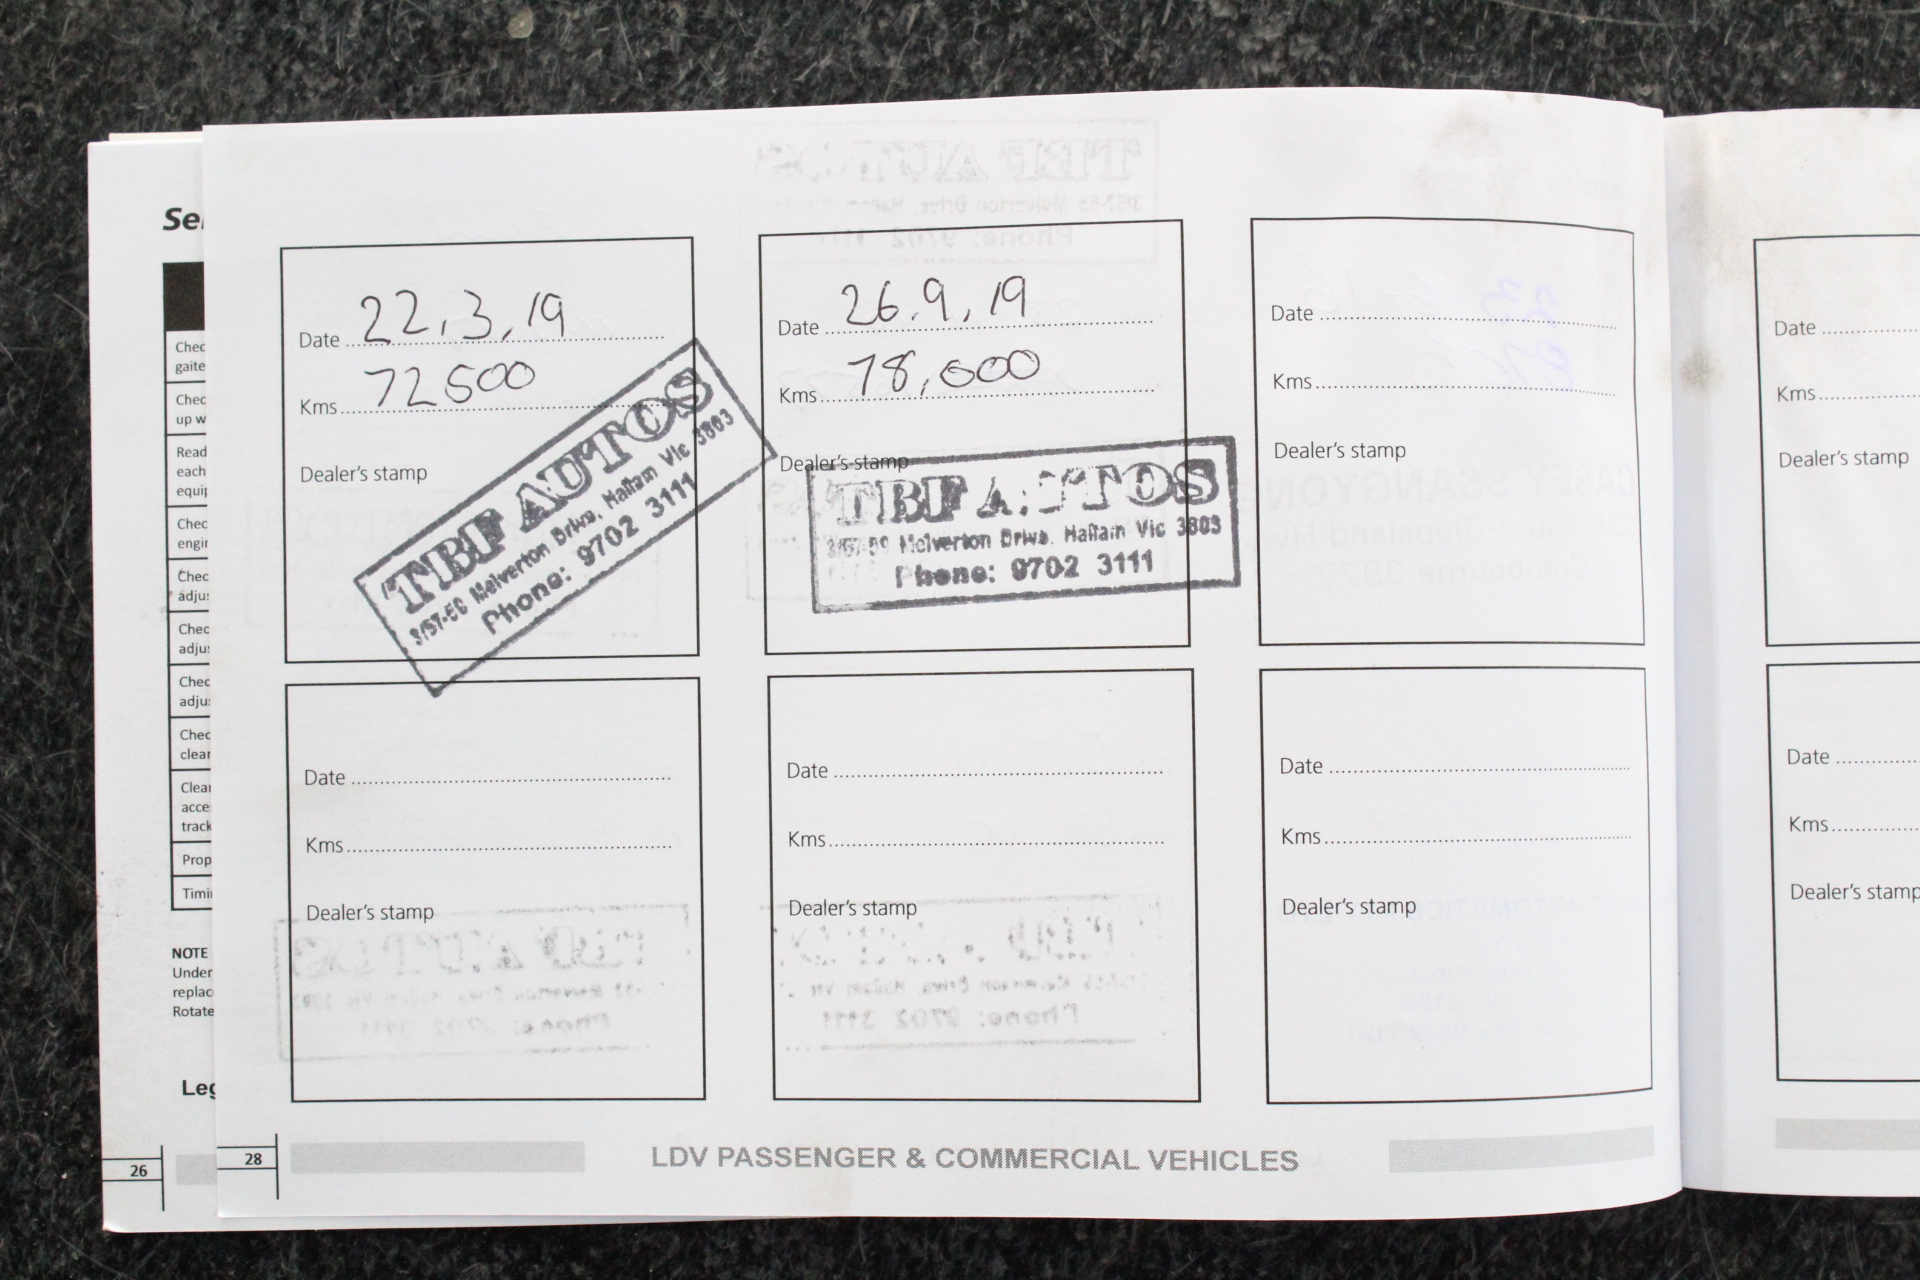 Ser
Chec
gaite
Chec
up w
Read
each
equip
Chec
engin
Chec
adjus
Chec
adjus
Chec
adjus
Chec
clear
Clear
acce
track
Prop
Timi
NOTE
Under
replac
Rotate
Leg
26
Date 22.3.19
Kms 72500
Dealer's stamp
TBF AUTOS
3/57-59 Melverton Drive, Hallam Vic 3803
Phone: 9702 3111
Date 26.9.19
Kms 78,000
Dealer's stamp
TBF AUTOS
3/57-59 Melverton Drive, Hallam Vic 3803
Phone: 9702 3111
Date
Kms
Dealer's stamp
Date
Kms
Dealer's stamp
Date
Kms
Dealer's stamp
Date
Kms
Dealer's stamp
28
LDV PASSENGER & COMMERCIAL VEHICLES
Date
Kms
Dealer's stamp
Date
Kms
Dealer's stamp